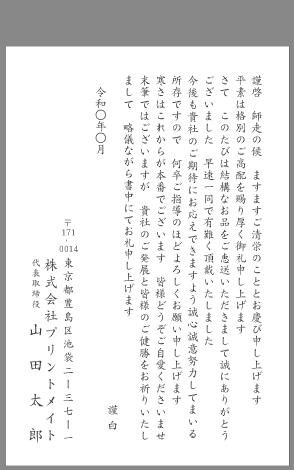 謹啓　師走の候　ますますご清栄のこととお慶び申し上げます
平素は格別のご高配を賜り厚く御礼申し上げます
さて　このたびは結構なお品をご恵送いただきまして誠にありがとう
ございました　早速一同で有難く頂戴いたしました
今後も貴社のご期待にお応えできますよう誠心誠意努力してまいる
所存ですので　何卒ご指導のほどよろしくお願い申し上げます
寒さはこれからが本番でございます　皆様どうぞご自愛くださいませ
末筆ではございますが　貴社のご発展と皆様のご健勝をお祈りいたし
まして　略儀ながら書中にてお礼申し上げます
謹白
令和〇年〇月
〒171-0014
東京都豊島区池袋二ー三七ー一
株式会社プリントメイト
代表取締役　山田太郎